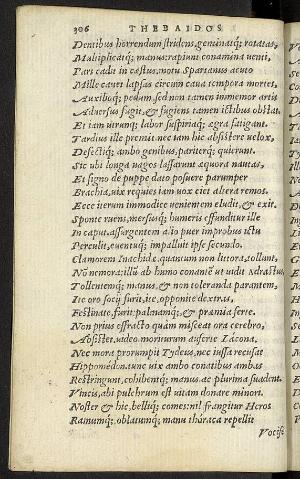 306 THEBAIDOS
Dentibus horrendum stridens, geminatq; rotatas,
Multiplicatq; manus: rapiunt conamina uenti,
Pars cadit in cæstus, motu Spartanus acuto
Mille cauet lapsas circum caua tempora mortes,
Auxilioq; pedum, sed non tamen immemor artis
Aduersus fugit, & fugiens tamen ictibus obstat.
Et iam utrunq; labor suspiriaq; ægra fatigant.
Tardius ille premit. nec iam hic absistere uelox,
Defectiq; ambo genibus, pariterq; quierunt.
Sic ubi longa uagos lassarunt æquora nautas,
Et signo de puppe dato posuere parumper
Brachia, uix requies iam uox ciet altera remos.
Ecce iterum immodice uenientem eludit, & exit
Sponte ruens, mersusq; humeris effunditur ille
In caput. assurgentem alio puer improbus ictu
Perculit, euentuq; impalluit ipse secundo.
Clamorem Inachidæ, quantum non littora, tollunt,
Nõ nemora: illũ ab humo conantẽ ut uidit Adrastus,
Tollentemq; manus, & non toleranda parantem,
Ite oro socij furit, ite, opponite dextras,
Festinate, furit: palmamq;, & præmia ferte.
Non prius effracto quàm misceat ora cerebro,
Absistet, uideo. moriturum auferte Lacona.
Nec mora prorumpit Tydeus, nec iussa recusat
Hippomedon. tunc uix ambo conatibus ambas
Restringunt, cohibentq; manus. ac plurima suadent.
Vincis, abi pulchrum est uitam donare minori.
Noster & hic, belliq; comes: nil frangitur Heros
Ramumq; oblatumq; manu thoraca repellit
Vocife